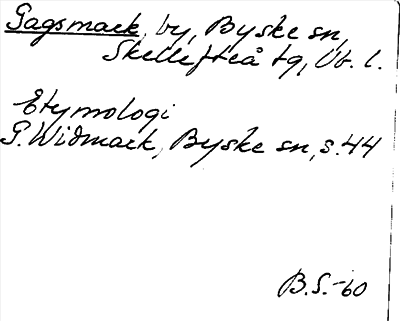 Gagsmark, by, Byske sn,
Skellefteå tg, Vb. l.
Etymologi
P. Widmark, Byske sn, s. 44
B.S. -60